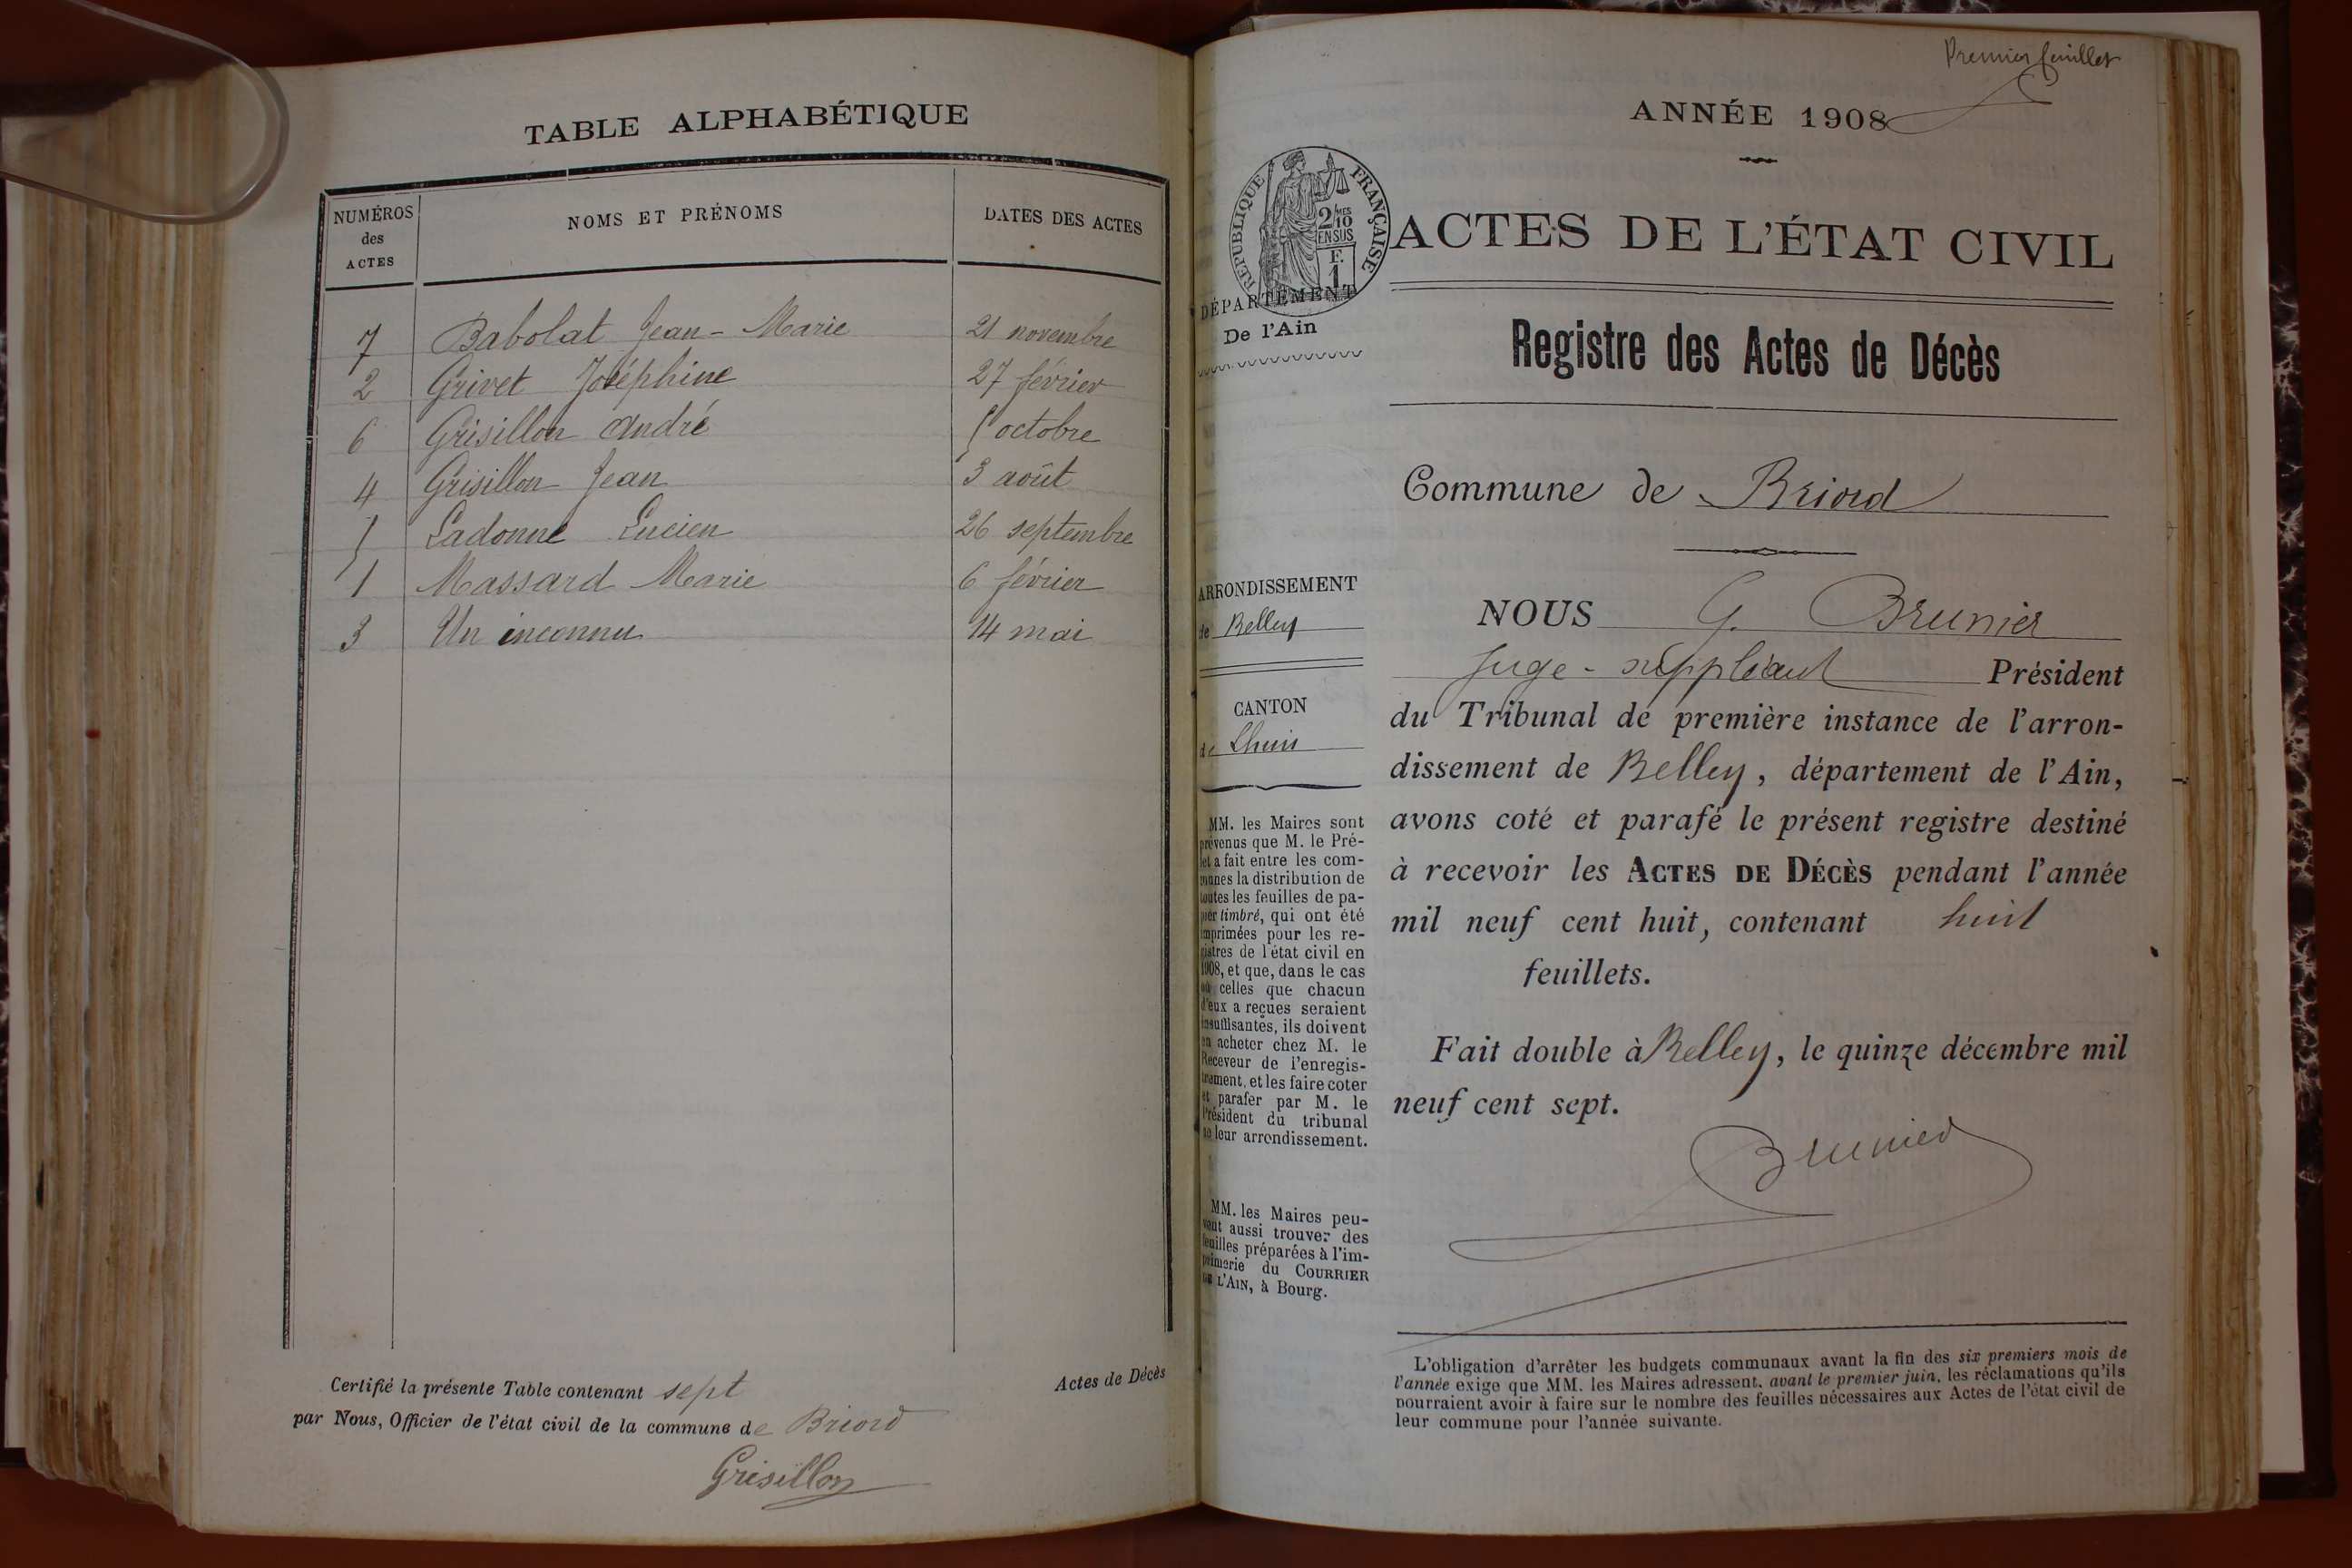 TABLE ALPHABÉTIQUE
NUMÉROS
des
ACTES
NOMS ET PRÉNOMS
DATES DES ACTES
7 Babolat Jean-Marie 21 novembre
2 Grivet Joséphine 27 février
6 Grisillon André octobre
4 Grisillon Jean 3 août
Ladonne Lucien 26 septembre
1 Massard Marie 6 février
3 Un inconnu 14 mai
Certifié la présente Table contenant sept Actes de Décès
par Nous, Officier de l'état civil de la commune de Briord
Grisillon
Premier feuillet
ANNÉE 1908
RÉPUBLIQUE FRANÇAISE
2/10MES
EN SUS
F.
1
DÉPARTEMENT
De l'Ain
ACTES DE L'ÉTAT CIVIL
Registre des Actes de Décès
Commune de Briord
ARRONDISSEMENT
de Belley
CANTON
de Lhuis
MM. les Maires sont
prévenus que M. le Pré-
fet a fait entre les com-
munes la distribution de
toutes les feuilles de pa-
pier timbré, qui ont été
imprimées pour les re-
gistres de l'état civil en
1908, et que, dans le cas
où celles que chacun
d'eux a reçues seraient
insuffisantes, ils doivent
en acheter chez M. le
Receveur de l'enregis-
trement, et les faire coter
et parafer par M. le
Président du tribunal
de leur arrondissement.
MM. les Maires peu-
vent aussi trouver des
feuilles préparées à l'im-
primerie du COURRIER
DE L'AIN, à Bourg.
NOUS G. Brunier
Juge-suppléant Président
du Tribunal de première instance de l'arron-
dissement de Belley, département de l'Ain,
avons coté et parafé le présent registre destiné
à recevoir les ACTES DE DÉCÈS pendant l'année
mil neuf cent huit, contenant huit
feuillets.
Fait double à Belley, le quinze décembre mil
neuf cent sept.
Brunier
L'obligation d'arrêter les budgets communaux avant la fin des six premiers mois de
l'année exige que MM. les Maires adressent, avant le premier juin, les réclamations qu'ils
pourraient avoir à faire sur le nombre des feuilles nécessaires aux Actes de l'état civil de
leur commune pour l'année suivante.